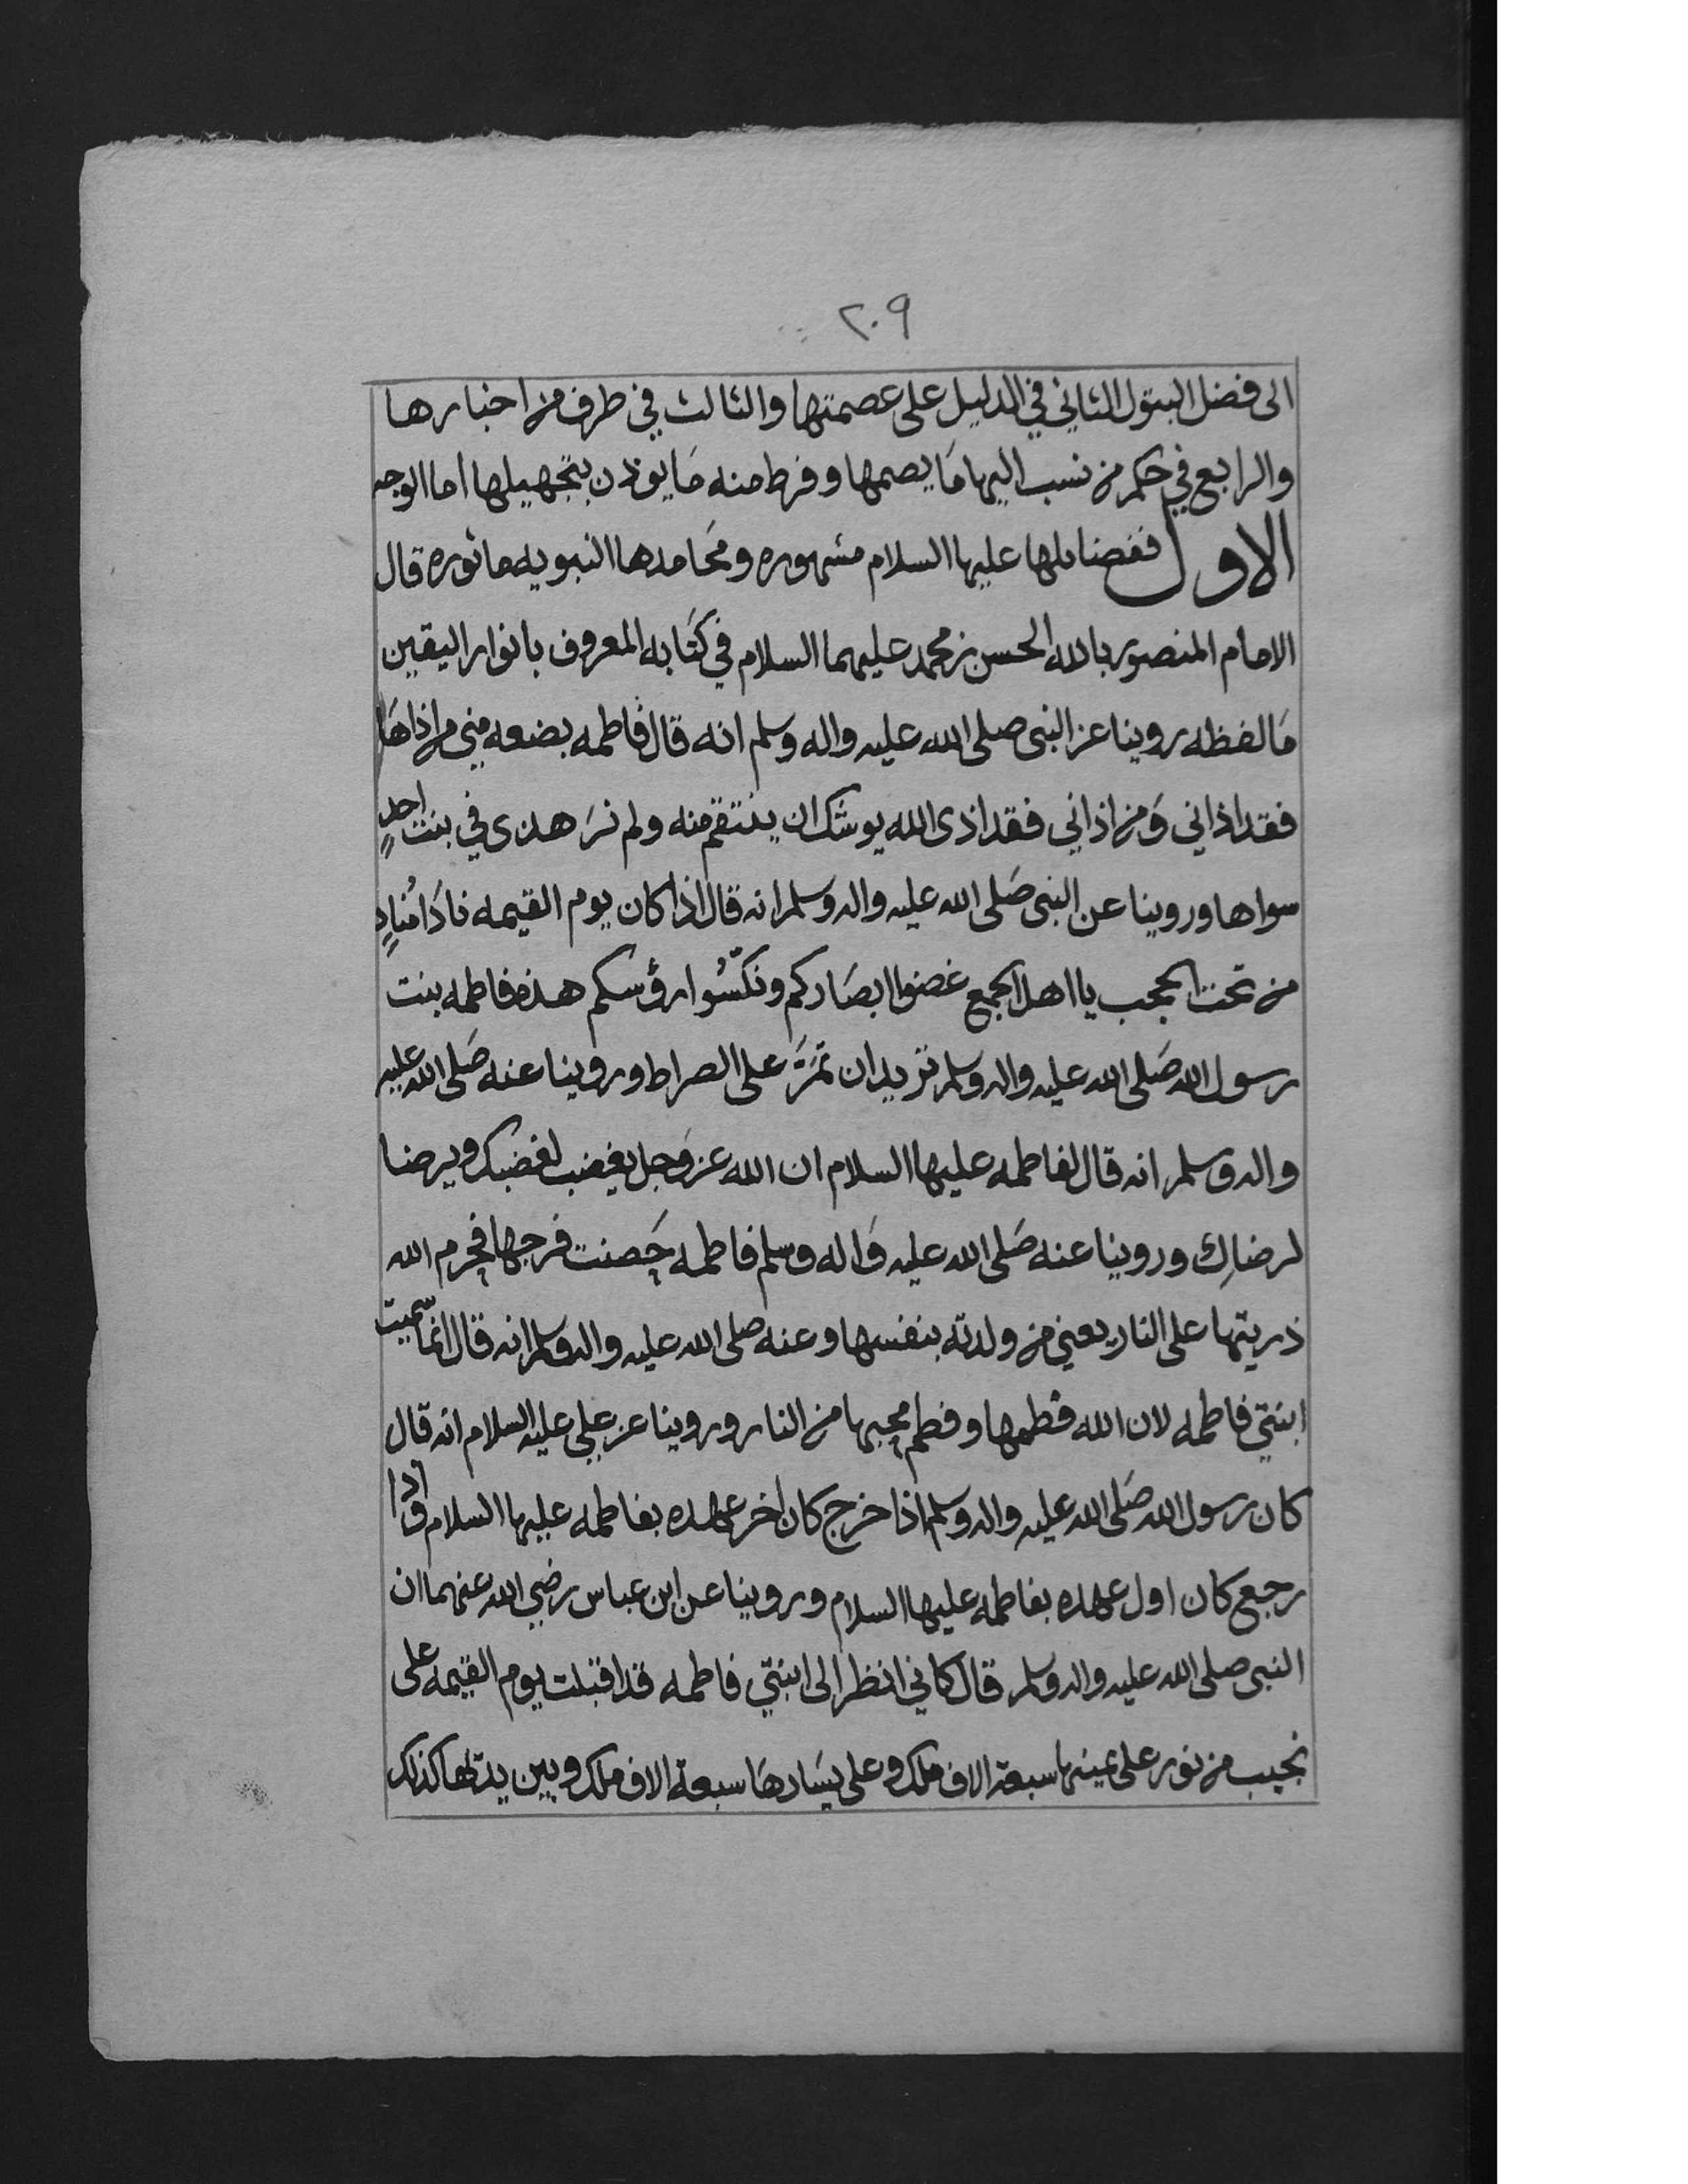 ٢٠٩
الى فضل البتول الثاني في الدليل على عصمتها والثالث في طرف من اخبارها
والرابع في حكم من نسب اليها مَا يصمها وفرط منه مَا يوذن بتجهيلها اما الوجه
الاول ففضايلها عليها السلام مشهوره ومحَامدها النبويه ماثوره قال
الامام المنصور بالله الحسن بن محمد عليهما السلام في كتَابه المعروف بانوار اليقين
مَا لفظه روينا عن النبى صلى الله عليه واله وسلم انه قال فاطمه بضعه مني من اذاهَا
فقد اذاني وَمن اذاني فقد اذى الله يوشك ان ينتقم منه ولم نرَ هذى في بنت احدٍ
سواها وروينا عن النبى صَلى الله عليه واله وسلم انه قال اذا كان يوم القيمه نادَا مُنادٍ
من تحت الحجب يا اهل الجمع غضوا ابصَاركم ونكّسُوا رؤسكم هذه فاطمه بنت
رسول الله صَلى الله عليه واله وسلم تريد ان تمرَّ على الصراط وروينا عنه صَلى الله عليه
واله وسلم انه قال لفاطمه عليها السلام ان الله عز وَجل يغضب لغضبك ويرضا
لرضاكِ وروينا عنه صَلى الله عليه وَاله وسلم فاطمه حَصنت فرجها فحرم الله
ذريتها على النار يعني من ولدته بنفسها وعنه صلى الله عليه واله وسلم انه قال انما سّميت
ابنتي فاطمه لان الله فطمها وفطم محبها من النار وروينا عن علي عليه السلام انه قال
كان رسول الله صَلى الله عليه واله وسلم اذا خرج كان اخر عهده بفاطمه عليها السلام واذا
رجع كان اول عهده بفاطمه عليها السلام وروينا عن ابن عباس رضي الله عنهما ان
النبى صلى الله عليه واله وسلم قال كاني انظر الى ابنتي فاطمه قد اقبلت يوم القيمه على
نجيب من نور على يمينها سبعة الاف ملك وعلى يسَارهَا سبعة الاف ملك وبين يديها كذلك